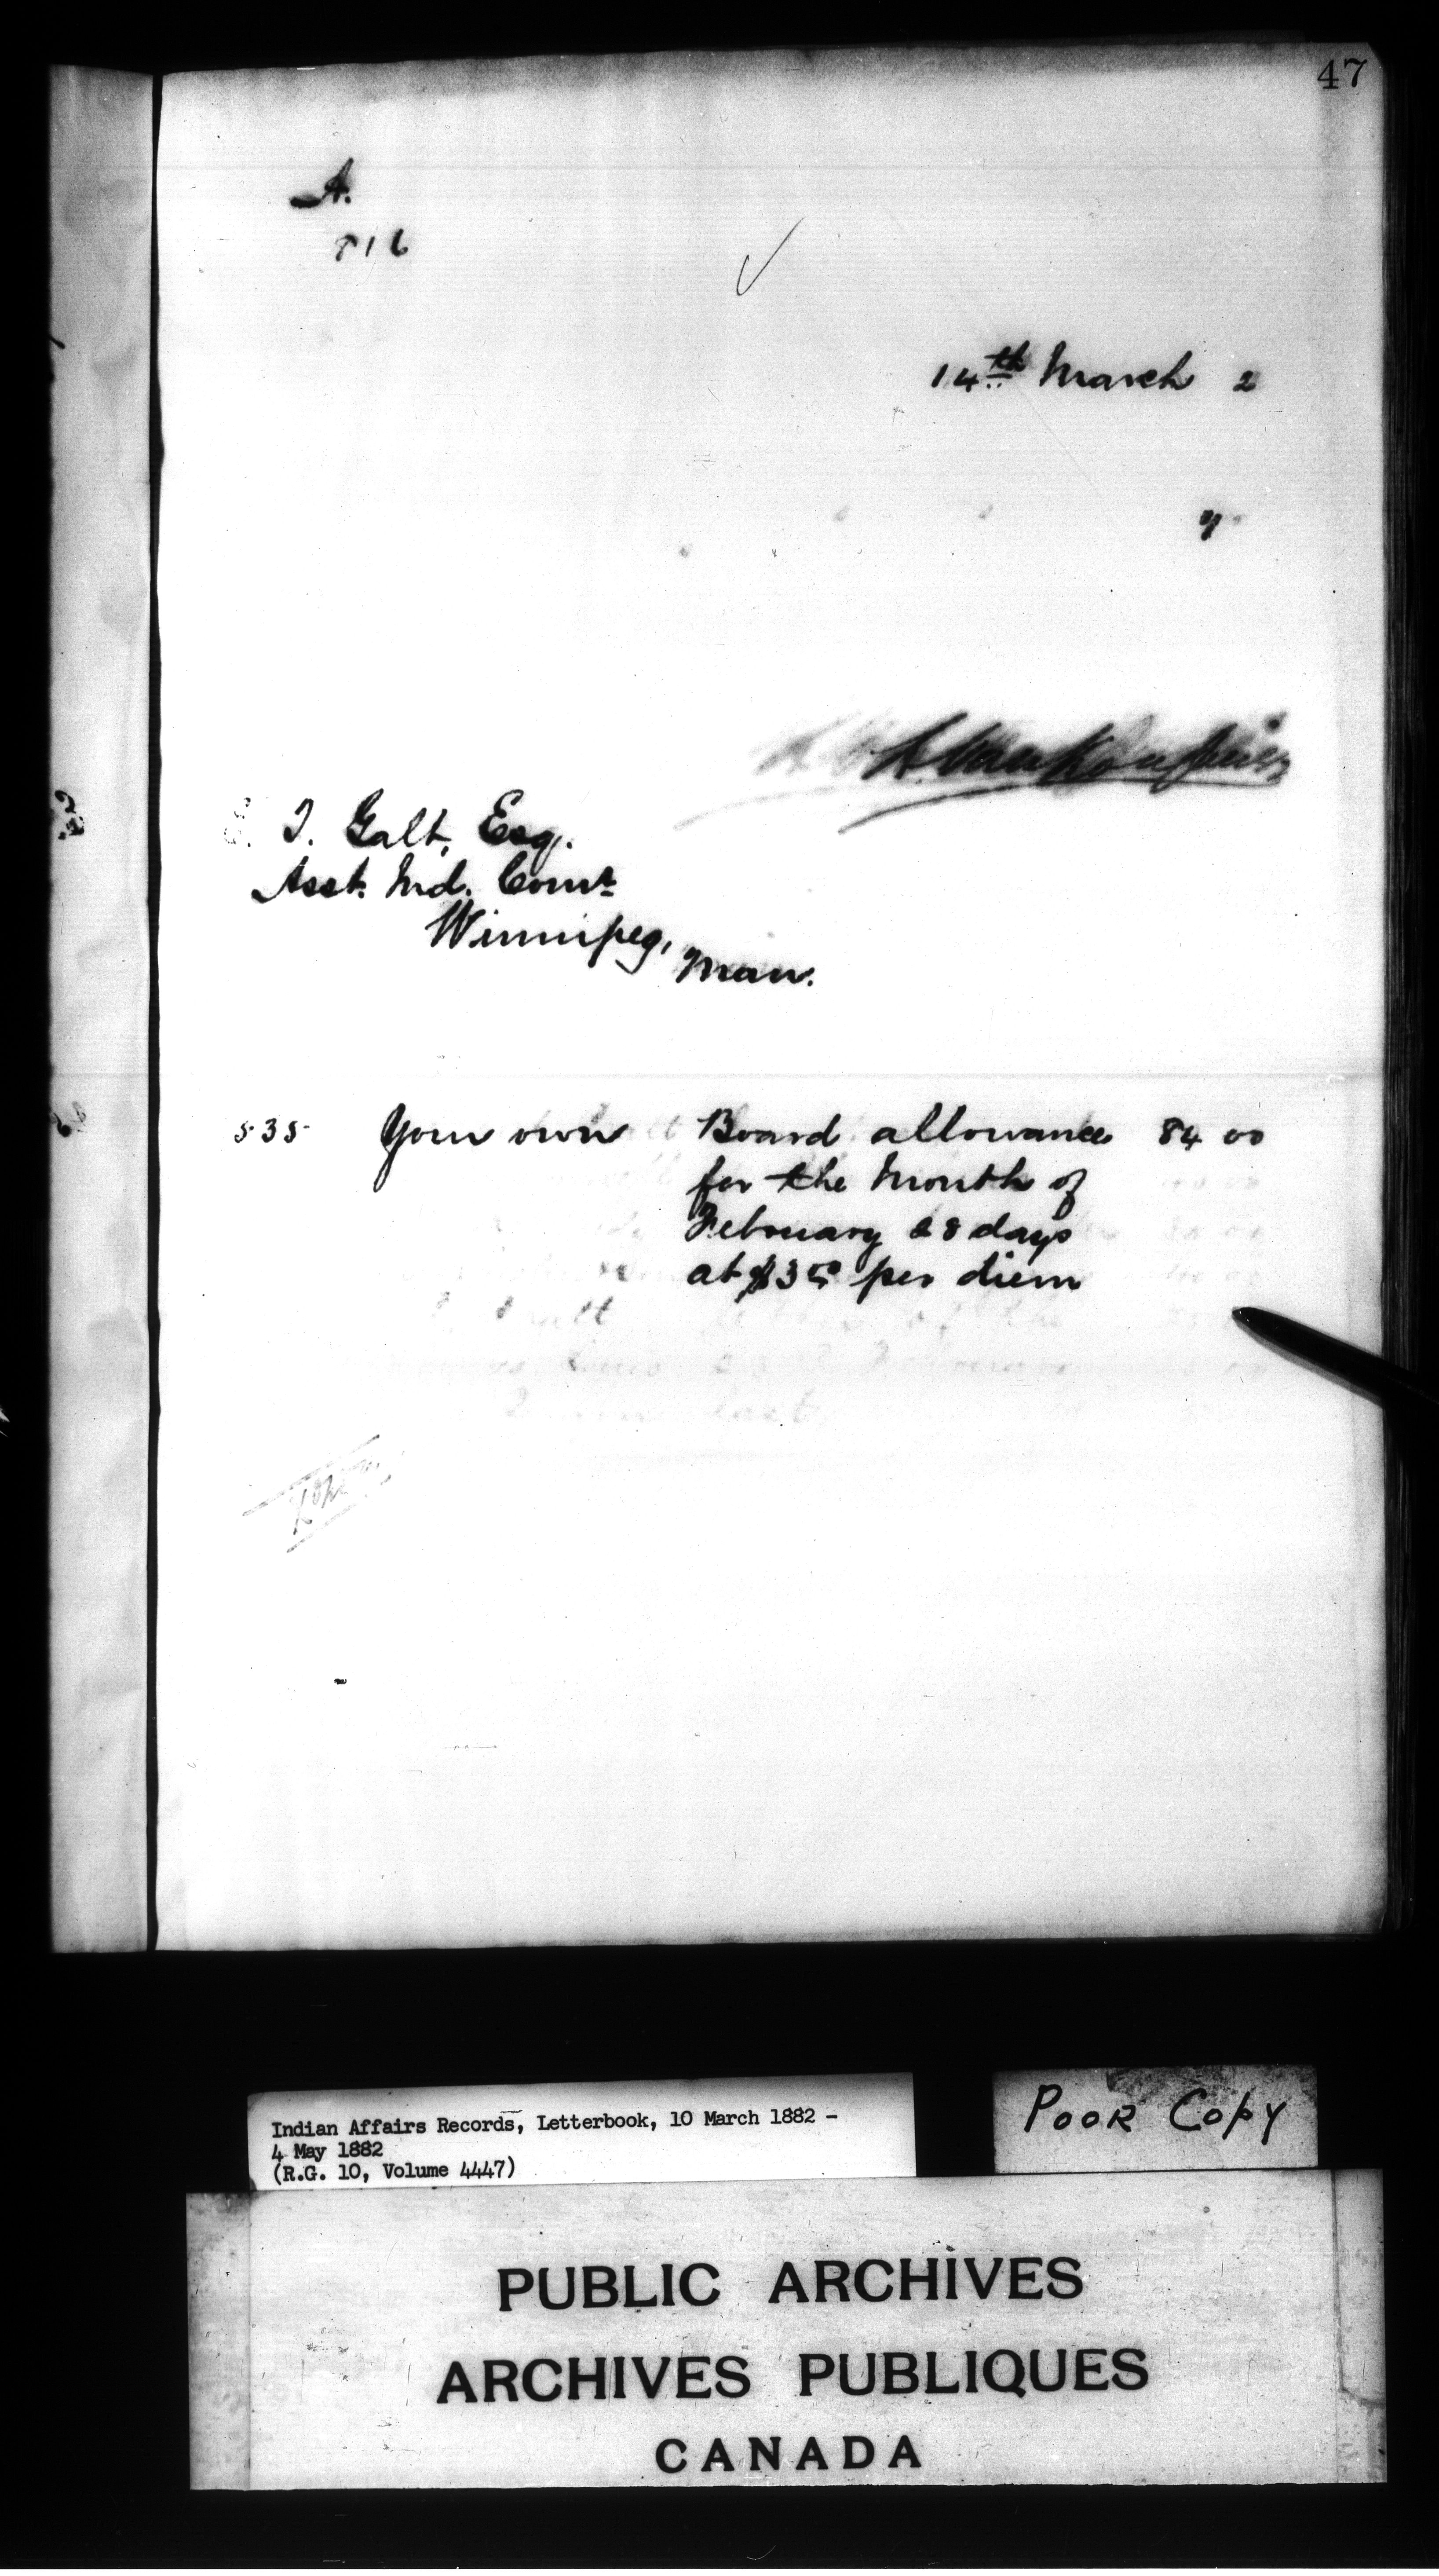 47
A.
816
14th March 2
y
L. Vankoughnet
T. Galt, Esq.
Asst. Ind. Comr
Winnipeg,
Man.
535 Your own Board allowance 84 00
for the Month of
February 28 days
at $3.00 per diem
Indian Affairs Records, Letterbook, 10 March 1882 -
4 May 1882
(R.G. 10, Volume 4447)
POOR COPY
PUBLIC ARCHIVES
ARCHIVES PUBLIQUES
CANADA